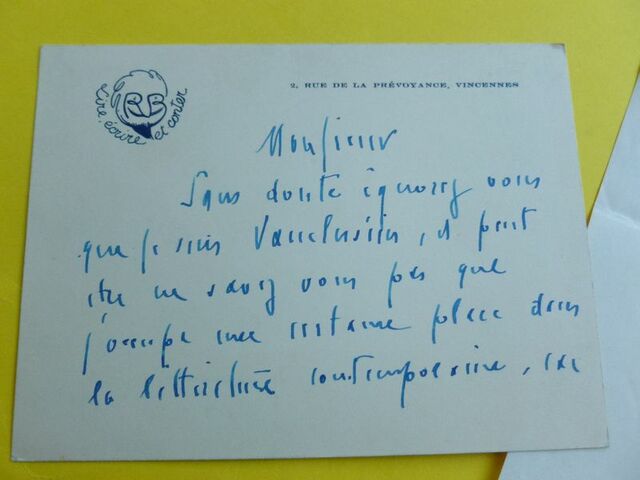 RB
lire, écrire et conter
2, RUE DE LA PRÉVOYANCE, VINCENNES
Monsieur
Sans doute ignorez vous
que je suis Vauclusien, et peut
être ne savez vous pas que
j'occupe une certaine place dans
la littérature contemporaine, car